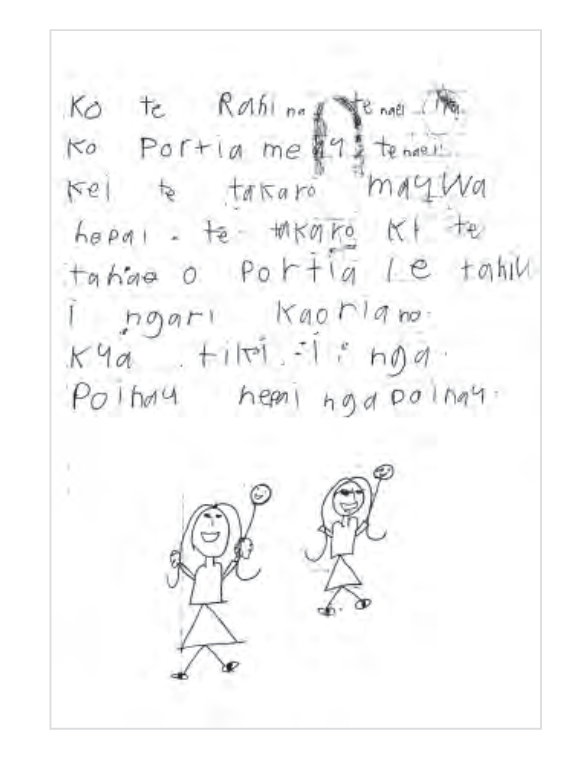 Ko te Rahi na te naei
Ko Portia me au te naei
Kei te takaro mauwa
hepai te takaro ki te
tahae o Portia i e tahi
i ngari kaoria no
Kua tiki i nga
Poihau hepai nga poihau.